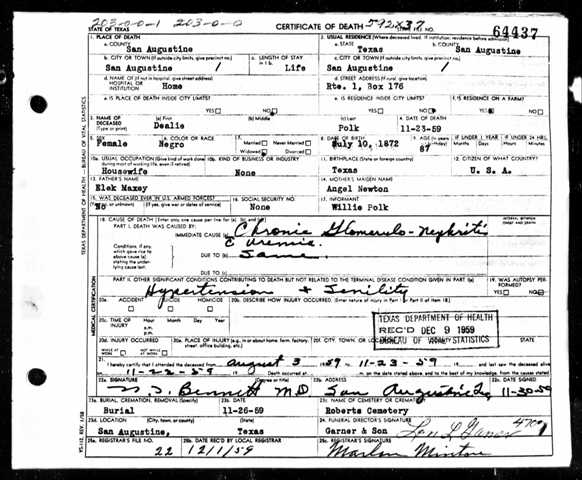 203-0-0-1 203-0-0 592X37
STATE OF TEXAS CERTIFICATE OF DEATH STATE FILE NO. 64437
1. PLACE OF DEATH 2. USUAL RESIDENCE (Where deceased lived. If institution: residence before admission)
a. COUNTY San Augustine a. STATE Texas b. COUNTY San Augustine
b. CITY OR TOWN (If outside city limits, give precinct no.) c. LENGTH OF STAY in 1 b. c. CITY OR TOWN (If outside city limits, give precinct no.)
San Augustine / Life San Augustine /
d. NAME OF (If not in hospital, give street address) HOSPITAL OR INSTITUTION Home d. STREET ADDRESS (If rural, give location) Rte. 1, Box 176
e. IS PLACE OF DEATH INSIDE CITY LIMITS? YES NO e. IS RESIDENCE INSIDE CITY LIMITS? YES NO f. IS RESIDENCE ON A FARM? YES NO
3. NAME OF DECEASED (Type or print) (a) First Dealie (b) Middle (c) Last Polk 4. DATE OF DEATH 11-23-59
5. SEX Female 6. COLOR OR RACE Negro 7. Married Never Married Widowed Divorced 8. DATE OF BIRTH July 10, 1872 9. AGE 87 IF UNDER 1 YEAR Months Days IF UNDER 24 HRS. Hours Min.
10a. USUAL OCCUPATION (Give kind of work done during most of working life, even if retired) 10b. KIND OF BUSINESS OR INDUSTRY 11. BIRTHPLACE (State or foreign country) 12. CITIZEN OF WHAT COUNTRY?
Housewife None Texas U. S. A.
13. FATHER'S NAME 14. MOTHER'S MAIDEN NAME
Elek Maxey Angel Newton
15. WAS DECEASED EVER IN U.S. ARMED FORCES? 16. SOCIAL SECURITY NO. 17. INFORMANT
(Yes, no, or unknown) (If yes, give war or dates of service)
No None Willie Polk
18. CAUSE OF DEATH [Enter only one cause per line for (a), (b), and (c).] INTERVAL BETWEEN ONSET AND DEATH
PART I. DEATH WAS CAUSED BY:
IMMEDIATE CAUSE (a) Chronic Glomerulo-Nephritis
Conditions, if any, which gave rise to above cause (a) stating the underlying cause last.
DUE TO (b) c uremia.
DUE TO (c) Same
PART II. OTHER SIGNIFICANT CONDITIONS CONTRIBUTING TO DEATH BUT NOT RELATED TO THE TERMINAL DISEASE CONDITION GIVEN IN PART I(a) 19. WAS AUTOPSY PERFORMED? YES NO
Hypertension & Senility
20a. ACCIDENT SUICIDE HOMICIDE 20b. DESCRIBE HOW INJURY OCCURRED. (Enter nature of injury in Part I or Part II of item 18.)
20c. TIME OF INJURY Hour Month Day Year a.m. p.m.
TEXAS DEPARTMENT OF HEALTH
REC'D DEC 9 1959
BUREAU OF VITAL STATISTICS
20d. INJURY OCCURRED WHILE AT WORK NOT WHILE AT WORK 20e. PLACE OF INJURY (e.g. in or about home, farm, factory, street, office building, etc.) 20f. CITY, TOWN, OR LOCATION COUNTY STATE
21. I hereby certify that I attended the deceased from August 3 1959 11-23-59 and last saw the deceased alive
11-23-59 Death occurred at m. on the date stated above, and to the best of my knowledge, from the causes stated.
22a. SIGNATURE (Degree or title) 22b. ADDRESS 22c. DATE SIGNED
Bennett MD San Augustine Tx 11-30-59
23a. BURIAL, CREMATION, REMOVAL (Specify) 23b. DATE 23c. NAME OF CEMETERY OR CREMATORY
Burial 11-26-59 Roberts Cemetery
23d. LOCATION (City, town, or county) (State) 24. FUNERAL DIRECTOR'S SIGNATURE
San Augustine, Texas Garner & Son 4700
25a. REGISTRAR'S FILE NO. 25b. DATE REC'D BY LOCAL REGISTRAR 25c. REGISTRAR'S SIGNATURE
22 12/1/59 Marlon Minton
TEXAS DEPARTMENT OF HEALTH — BUREAU OF VITAL STATISTICS
MEDICAL CERTIFICATION
VS-112, REV. 1/58